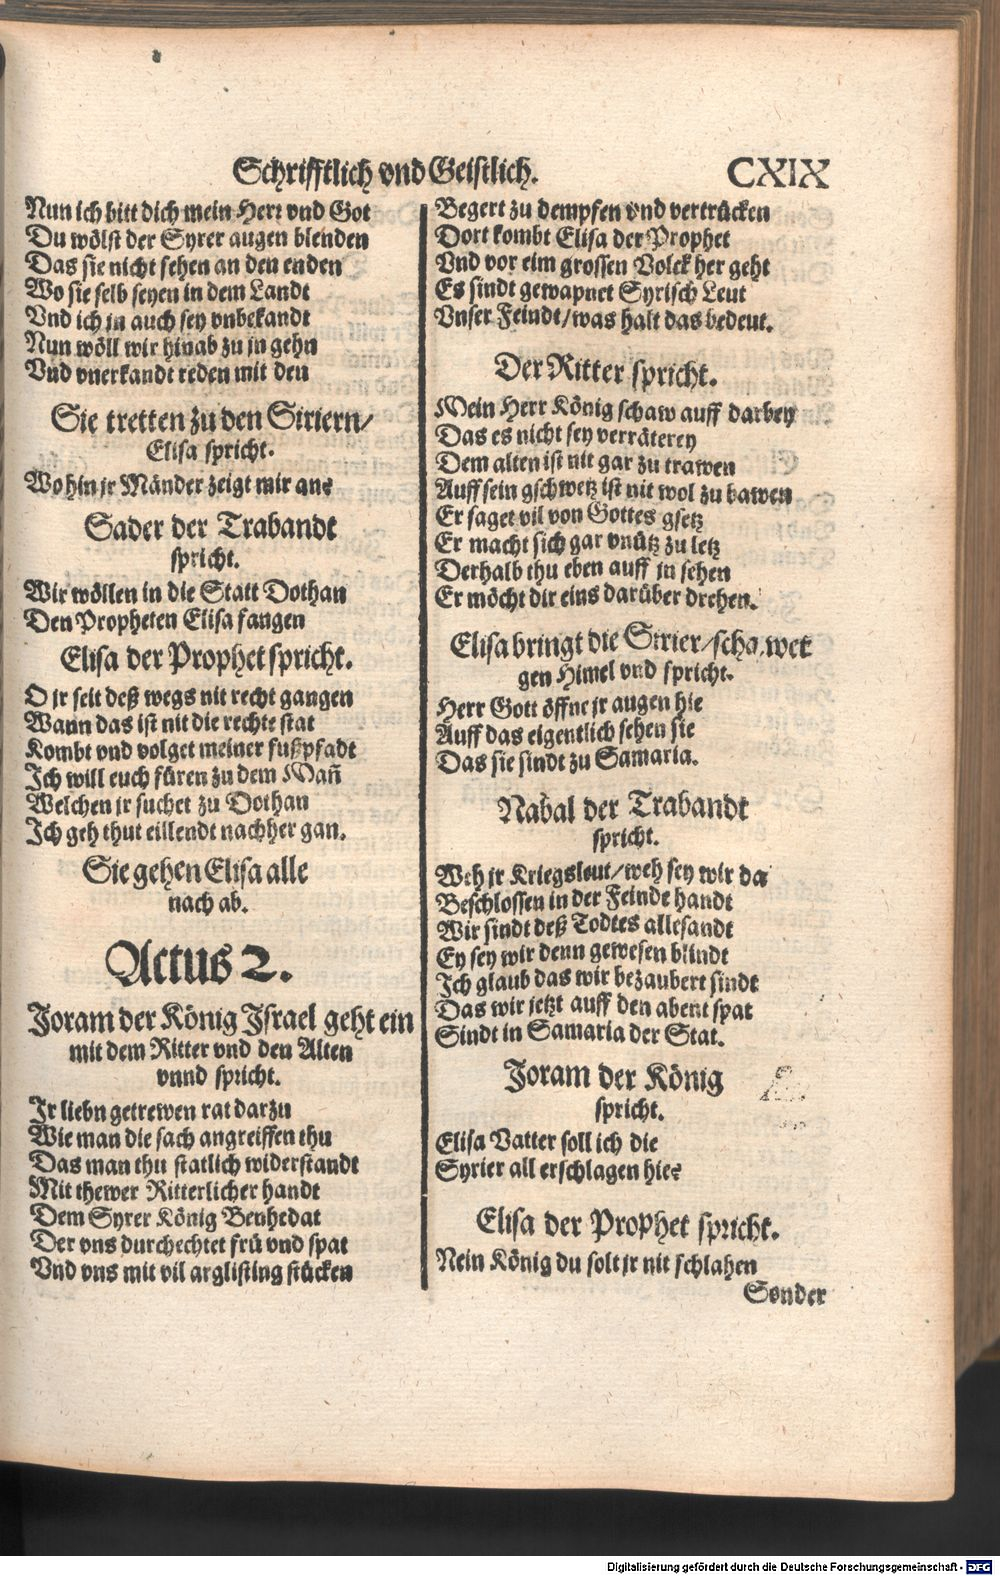 Schrifftlich vnd Geistlich.
CXIX
Nun ich bitt dich mein Herr vnd Got
Du wölst der Syrer augen blenden
Das sie nicht sehen an den enden
Wo sie selb seyen in dem Landt
Vnd ich jn auch sey vnbekandt
Nun wöll wir hinab zu jn gehn
Vnd vnerkandt reden mit den
Sie tretten zu den Siriern/
Elisa spricht.
Wo hin jr Mänder zeigt mir an?
Sader der Trabandt
spricht.
Wir wöllen in die Statt Dothan
Den Propheten Elisa fangen
Elisa der Prophet spricht.
O jr seit deß wegs nit recht gangen
Wann das ist nit die rechte stat
Kombt vnd volget meiner fußpfadt
Ich will euch füren zu dem Man̄
Welchen jr suchet zu Dothan
Ich geh thut eillendt nachher gan.
Sie gehen Elisa alle
nach ab.
Actus 2.
Joram der König Israel geht ein
mit dem Ritter vnd den Alten
vnnd spricht.
Ir liebn getrewen rat darzu
Wie man die sach angreiffen thu
Das man thu statlich widerstandt
Mit thewer Ritterlicher handt
Dem Syrer König Benhedat
Der vns durchechtet frü vnd spat
Vnd vns mit vil arglisting stücken
Begert zu dempfen vnd vertrücken
Dort kombt Elisa der Prophet
Vnd vor eim grossen Volck her geht
Es sindt gewapnet Syrisch Leut
Vnser Feindt/was halt das bedeut.
Der Ritter spricht.
Mein Herr König schaw auff darbey
Das es nicht sey verräterey
Dem alten ist nit gar zu trawen
Auff sein gschwetz ist nit wol zu bawen
Er saget vil von Gottes gsetz
Er macht sich gar vnütz zu letz
Derhalb thu eben auff jn sehen
Er möcht dir eins darüber drehen.
Elisa bringt die Sirier/schawet
gen Himel vnd spricht.
Herr Gott öffne jr augen hie
Auff das eigentlich sehen sie
Das sie sindt zu Samaria.
Nabal der Trabandt
spricht.
Weh jr Kriegsleut/weh sey wir da
Beschlossen in der Feinde handt
Wir sindt deß Todtes allesandt
Ey sey wir denn gewesen blindt
Ich glaub das wir bezaubert sindt
Das wir jetzt auff den abent spat
Sindt in Samaria der Stat.
Joram der König
spricht.
Elisa Vatter soll ich die
Syrier all erschlagen hie?
Elisa der Prophet spricht.
Nein König du solt jr nit schlahen
Sonder
Digitalisierung gefördert durch die Deutsche Forschungsgemeinschaft - DFG